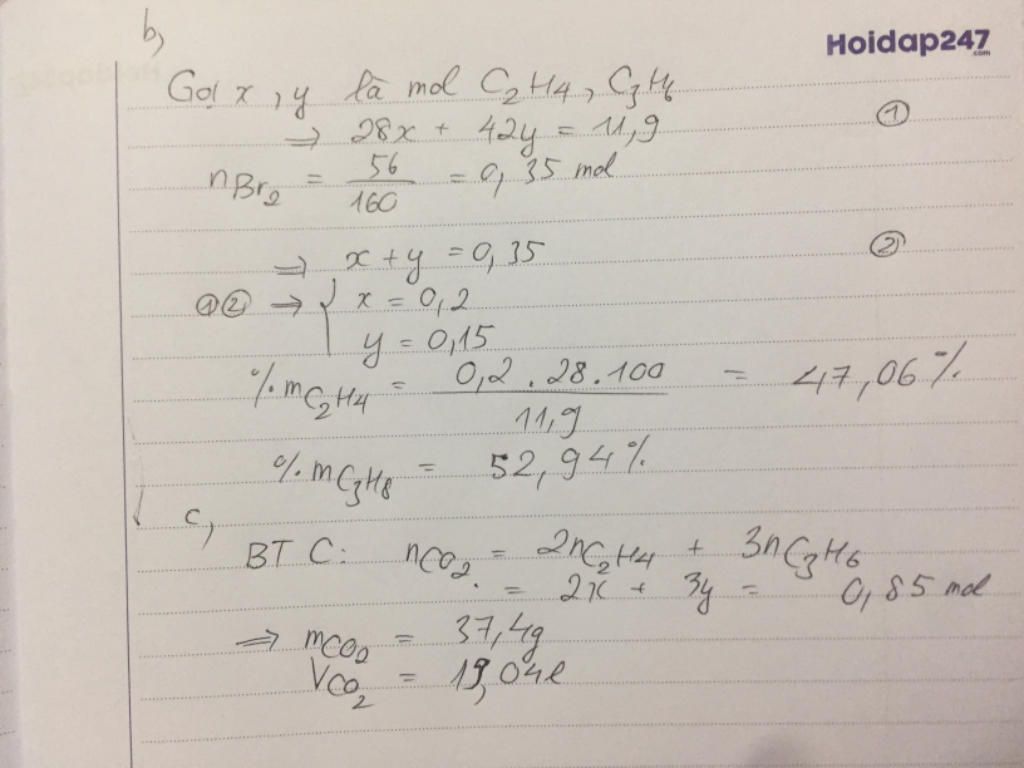 b,
Hoidap247
.com
Gọi x, y là mol C2H4, C3H6
⇒ 28x + 42y = 11,9 ①
nBr2 = 56/160 = 0,35 mol
⇒ x + y = 0,35 ②
①② → { x = 0,2
y = 0,15
%mC2H4 = 0,2 . 28 . 100 / 11,9 = 47,06%
%mC3H8 = 52,94%
c,
BT C: nCO2 = 2nC2H4 + 3nC3H6
= 2x + 3y = 0,85 mol
⇒ mCO2 = 37,4g
VCO2 = 19,04l